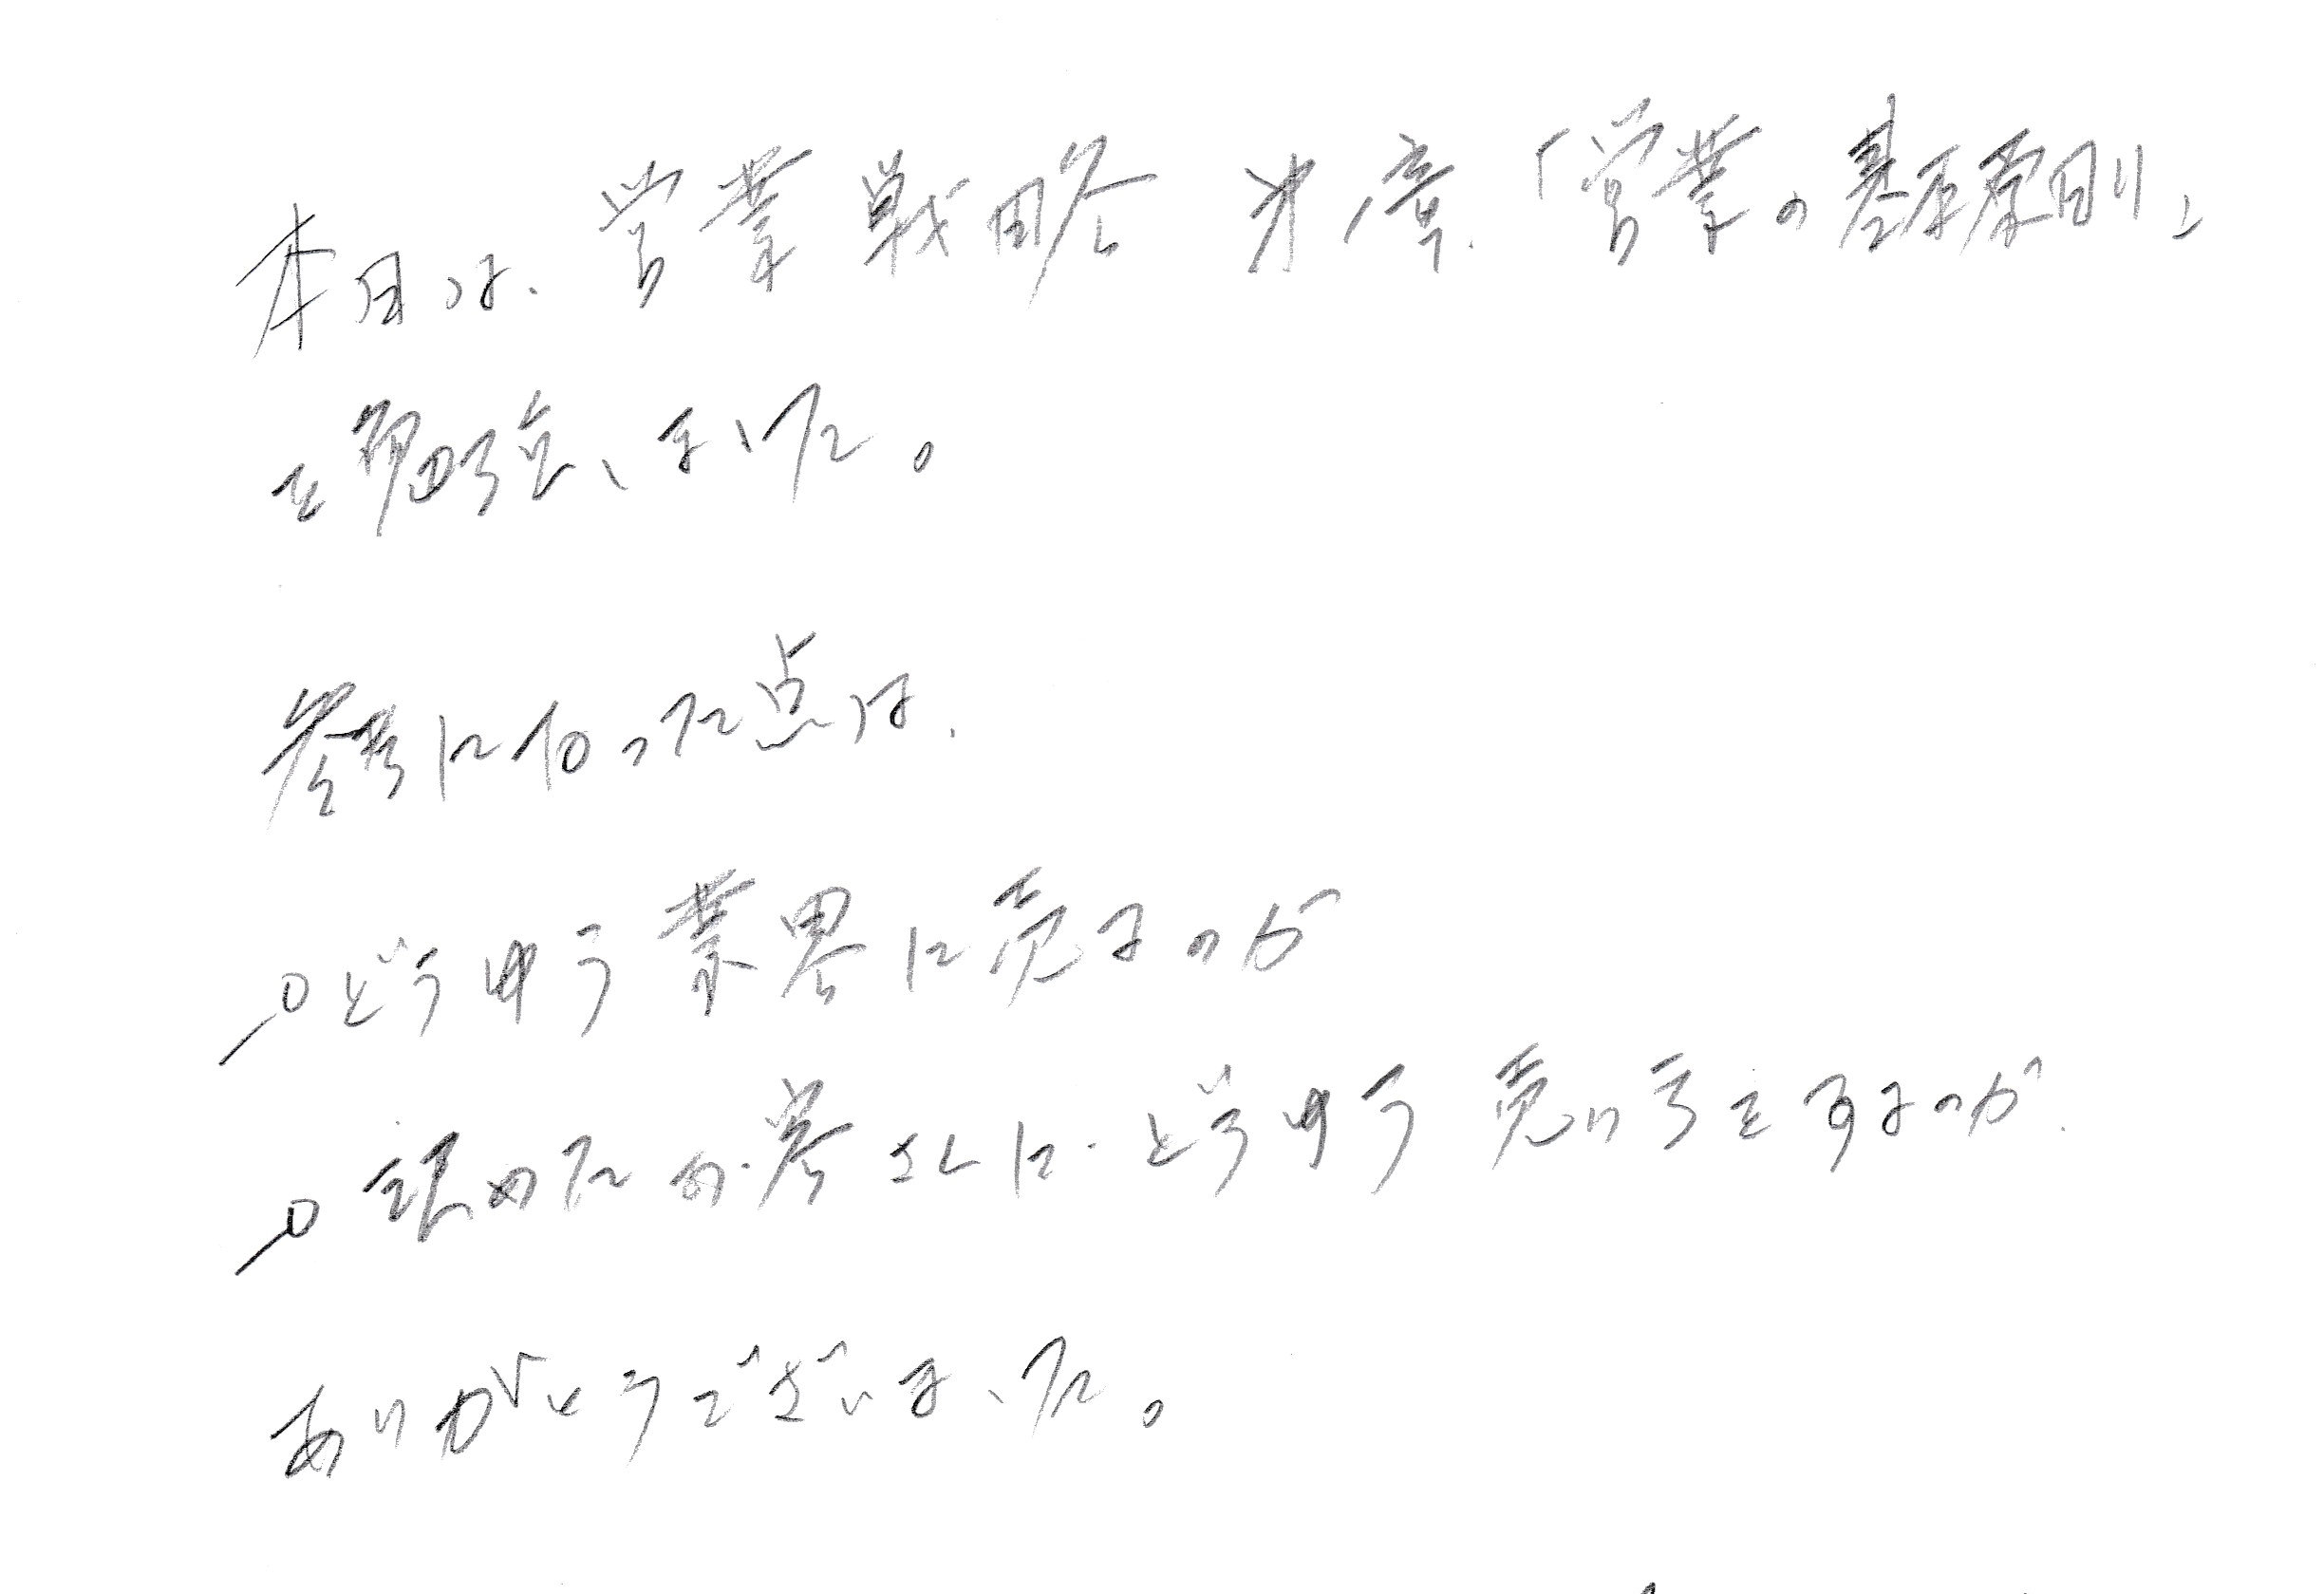 本日は、営業戦略 第1章、「営業の基本原則」
を勉強しました。
参考になった点は、
○どうゆう業界に売るのか
○決めたお客さんに、どうゆう売り方をするのか、
ありがとうございました。